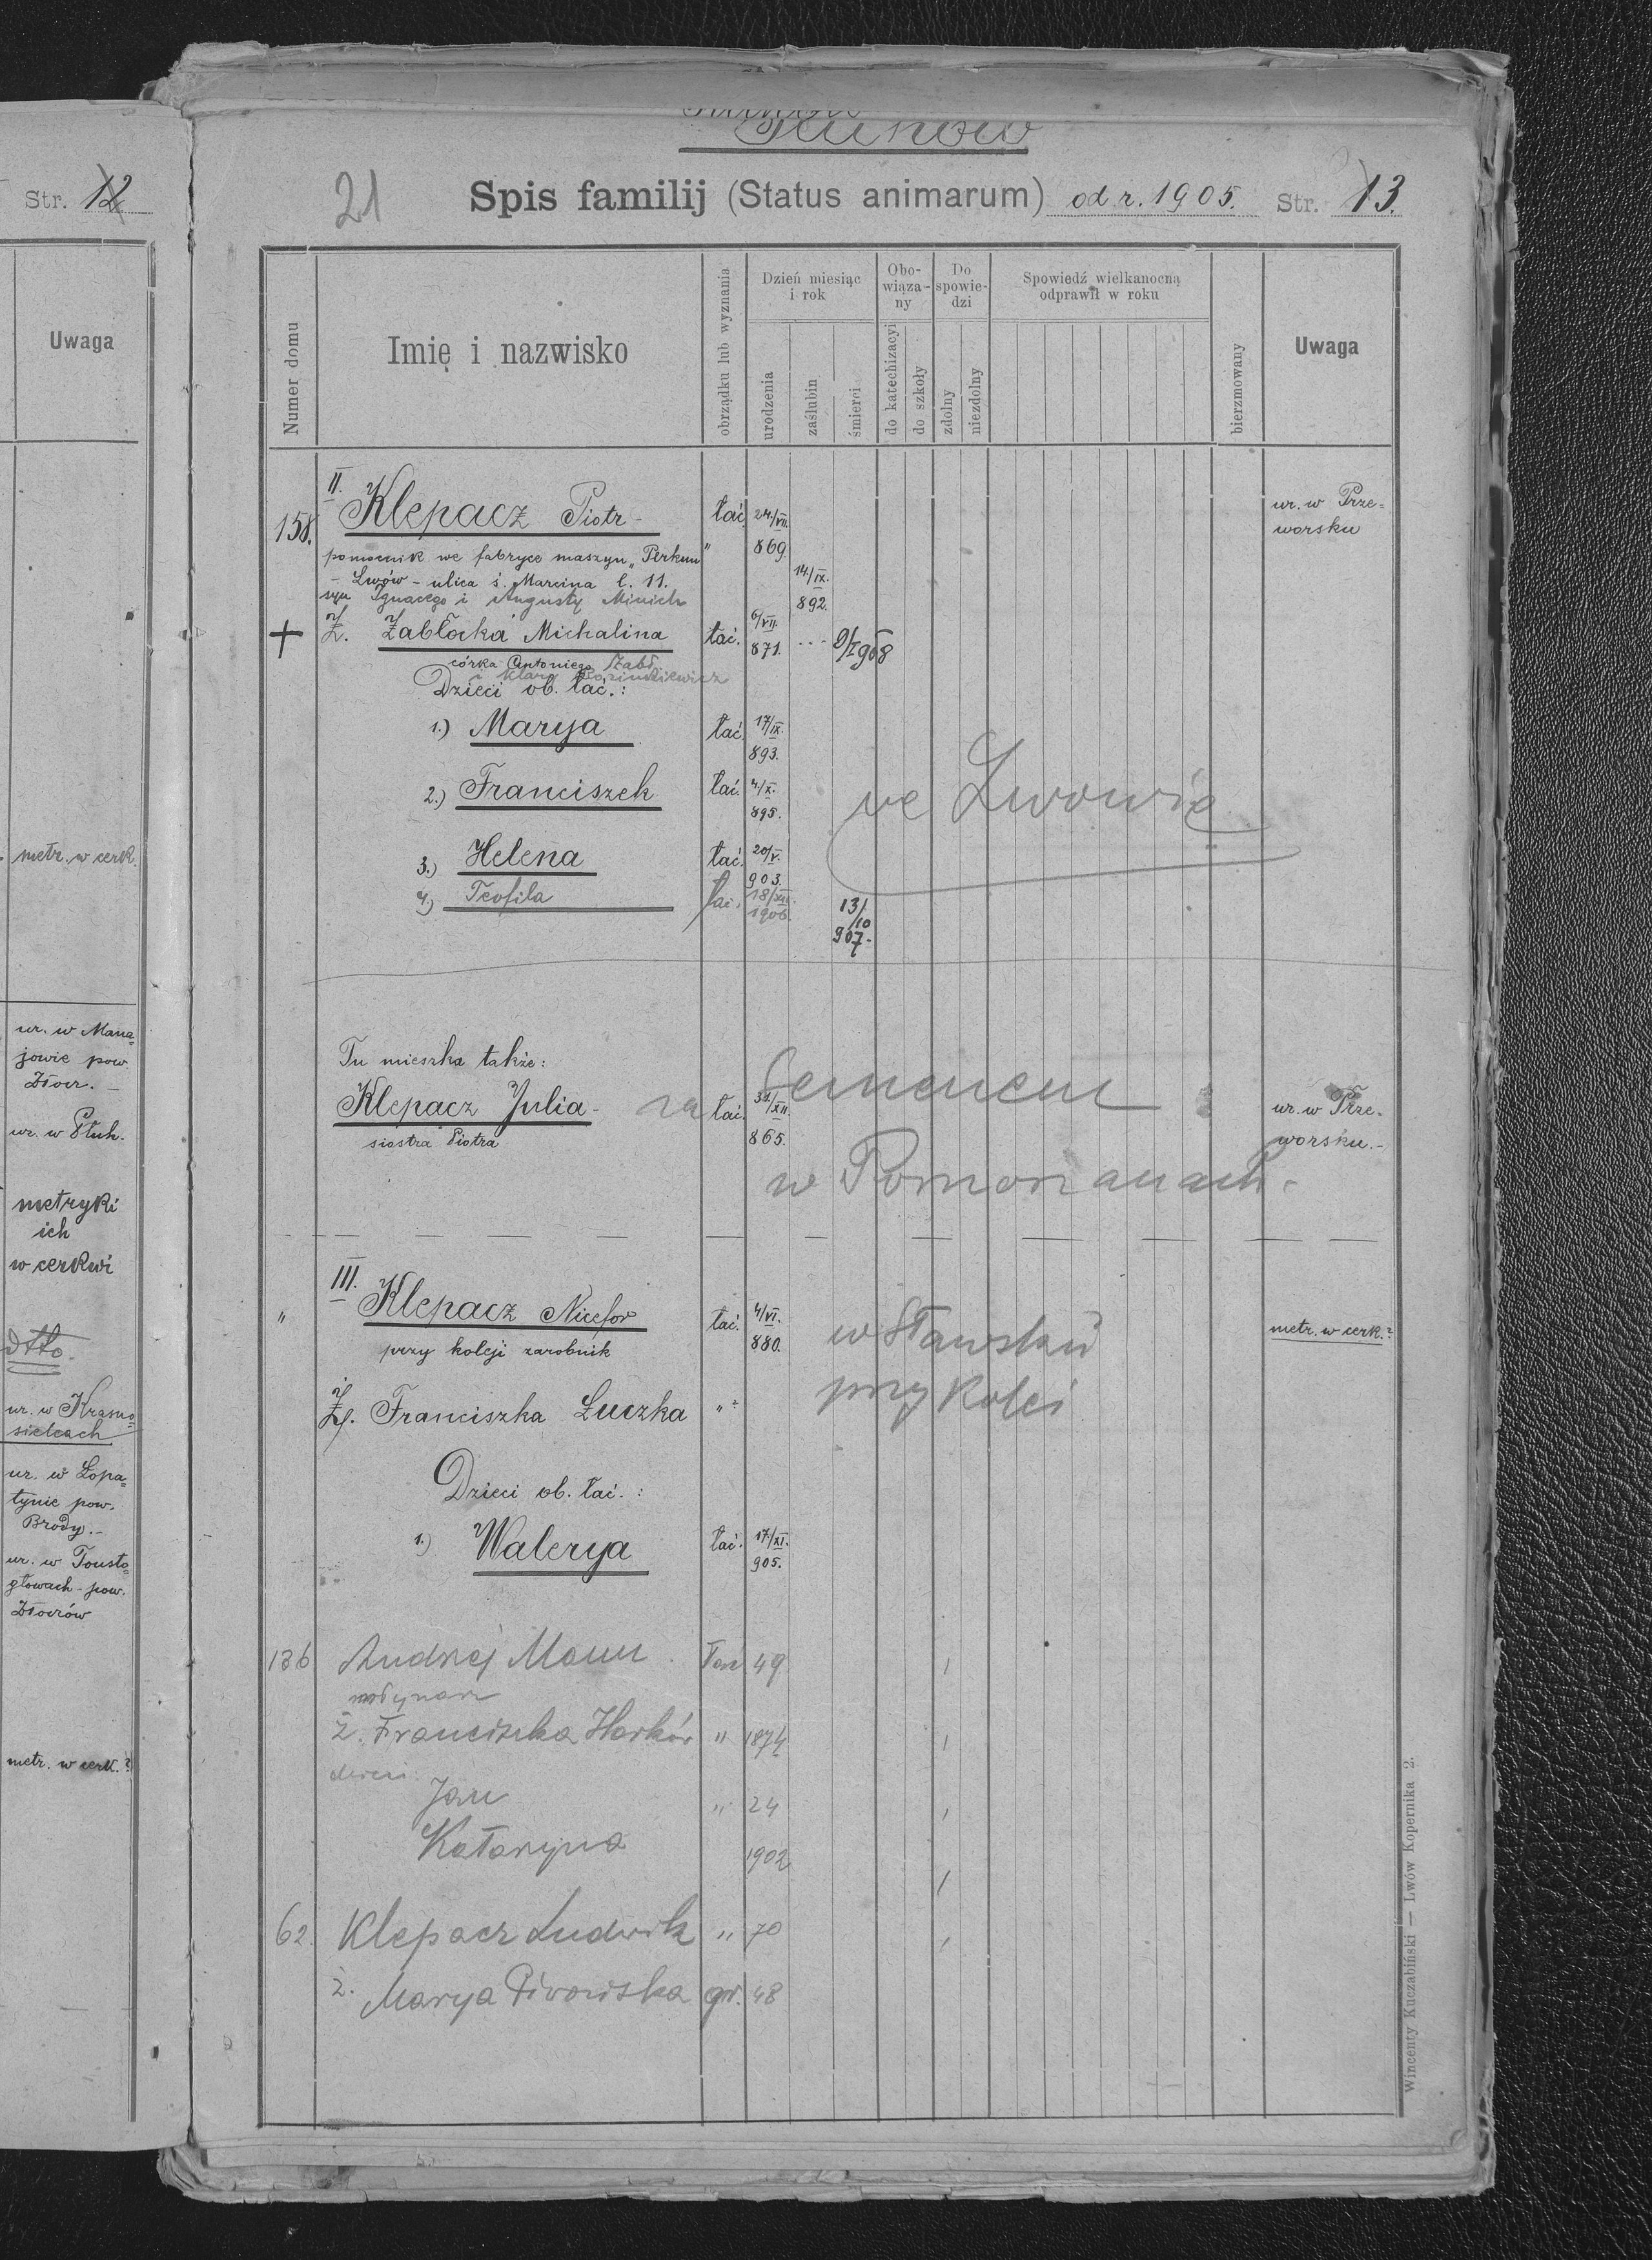 Płuhów
Str. 12
21
Spis familij (Status animarum) od r. 1905. Str. 13.
Uwaga
Numer domu
Imię i nazwisko
obrządku lub wyznania
Dzień miesiąc i rok
urodzenia
zaślubin
śmierci
Obo-wiąza-ny
do katechizacyi
do szkoły
Do spowie-dzi
zdolny
niezdolny
Spowiedź wielkanocną odprawił w roku
bierzmowany
Uwaga
metr. w cerk.
ur. w Mana-
jowie pow.
Złocz. -
ur. w Płuh.
metryki
ich
w cerkwi
dtto.
ur. w Krasno-
sielcach
ur. w Łopa-
tynie pow.
Brody. -
ur. w Tousto-
głowach - pow.
Złoczów
metr. w cerk.?
II.
158. Klepacz Piotr - łać. 24/VII. 869. ur. w Prze-
worsku
pomocnik we fabryce maszyn "Perkun"
- Lwów - ulica ś. Marcina l. 11. 14/IX. 892.
syn Ignacego i Augusty Minich
+ Ż. Zabłocka Michalina łać. 6/VII. 871. ... 9/I 908
córka Antoniego Zabł.
i Klary
Dzieci ob. łać.:
1.) Marya łać. 17/IX. 893.
2.) Franciszek łać. 4/X. 895. we Lwowie
3.) Helena łać. 20/V. 903.
4) Teofila łać. 18/XII. 1906. 13/10 907.
Tu mieszka także:
Klepacz Julia - za łać. 31/XII. 865. Semenem ur. w Prze-
worsku. -
siostra Piotra
w Pomorzanach.
III.
" Klepacz Nicefor łać. 4/VI. 880. w Sławsku metr. w cerk.?
przy koleji zarobnik
przy kolei
Ż. Franciszka Łuczka "?
Dzieci ob. łać. :
1.) Walerya łać. 17/XI. 905.
136 Andrzej Maun łać 49
młynarz
ż. Franciszka Harków " 1874
dzieci.
Jan " 24
Katarzyna 1902
62. Klepacz Ludwik " 70
ż. Marya gr. 48
Wincenty Kuczabiński — Lwów Kopernika 2.